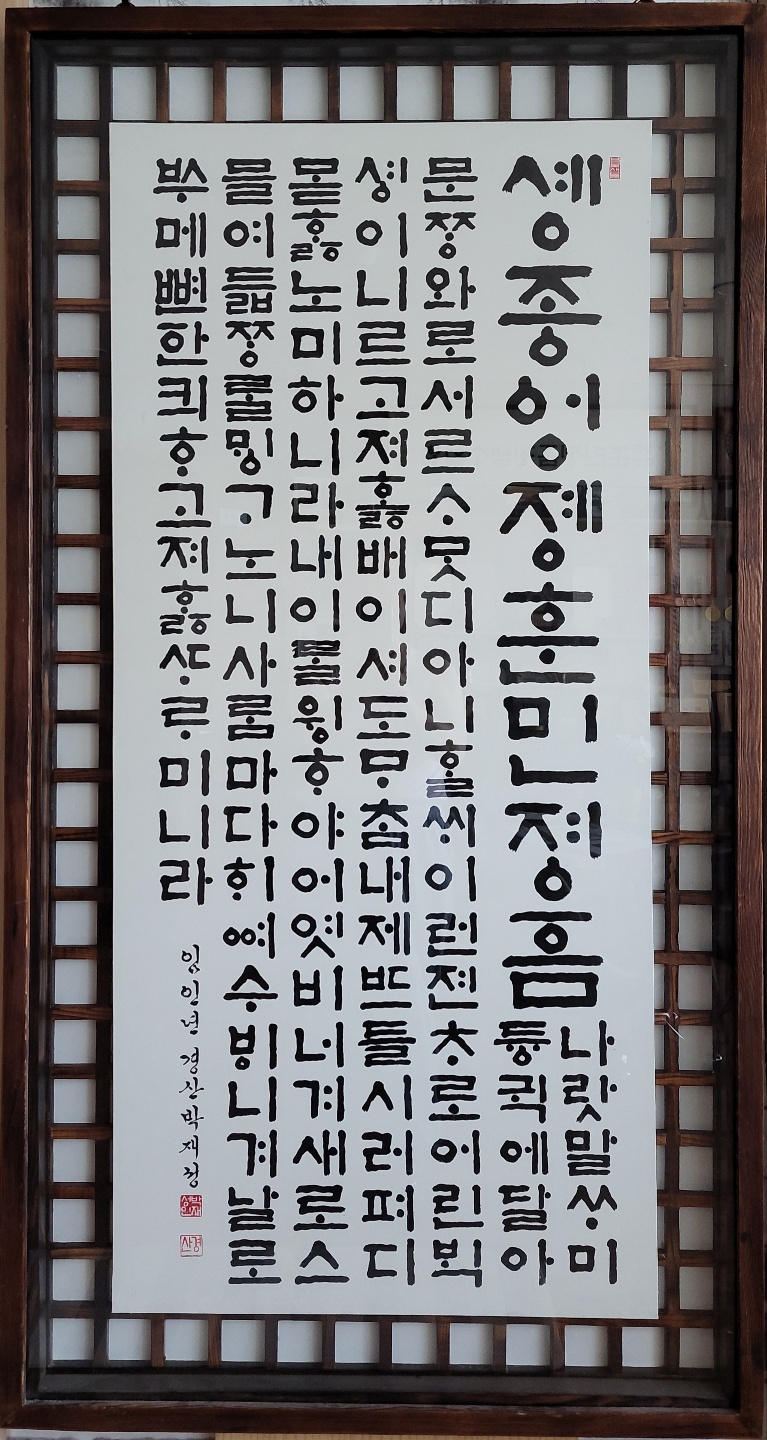 솅종엉졩훈민졍흠
나랏말ᄊᆞ미
듕귁에달아
문ᄍᆞᆼ와로서르ᄉᆞᄆᆞᆺ디아니ᄒᆞᆯᄊᆡ이런젼ᄎᆞ로어린ᄇᆡᆨ
셩이니르고져ᄒᆞᇙ배이셔도ᄆᆞᄎᆞᆷ내제ᄠᅳ들시러펴디
몯ᄒᆞᇙ노미하니라내이ᄅᆞᆯ윙ᄒᆞ야어엿비너겨새로스
믈여듧ᄍᆞᆼᄅᆞᆯᄆᆡᆼᄀᆞ노니사ᄅᆞᆷ마다ᄒᆡᅇᅧ수ᄫᅵ니겨날로
ᄡᅮ메뼌한킈ᄒᆞ고져ᄒᆞᇙᄯᆞᄅᆞ미니라
임인년 경산 박재정
경산